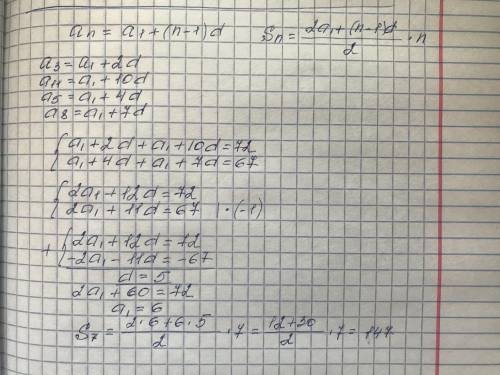 aₙ = a₁ + (n-1)d    Sₙ = (2a₁ + (n-1)d)/2 · n
a₃ = a₁ + 2d
a₁₁ = a₁ + 10d
a₅ = a₁ + 4d
a₈ = a₁ + 7d
{ a₁ + 2d + a₁ + 10d = 72
{ a₁ + 4d + a₁ + 7d = 67
{ 2a₁ + 12d = 72
{ 2a₁ + 11d = 67 | · (-1)
+ { 2a₁ + 12d = 72
{ -2a₁ - 11d = -67
d = 5
2a₁ + 60 = 72
a₁ = 6
S₇ = (2·6 + 6·5)/2 · 7 = (12+30)/2 · 7 = 147